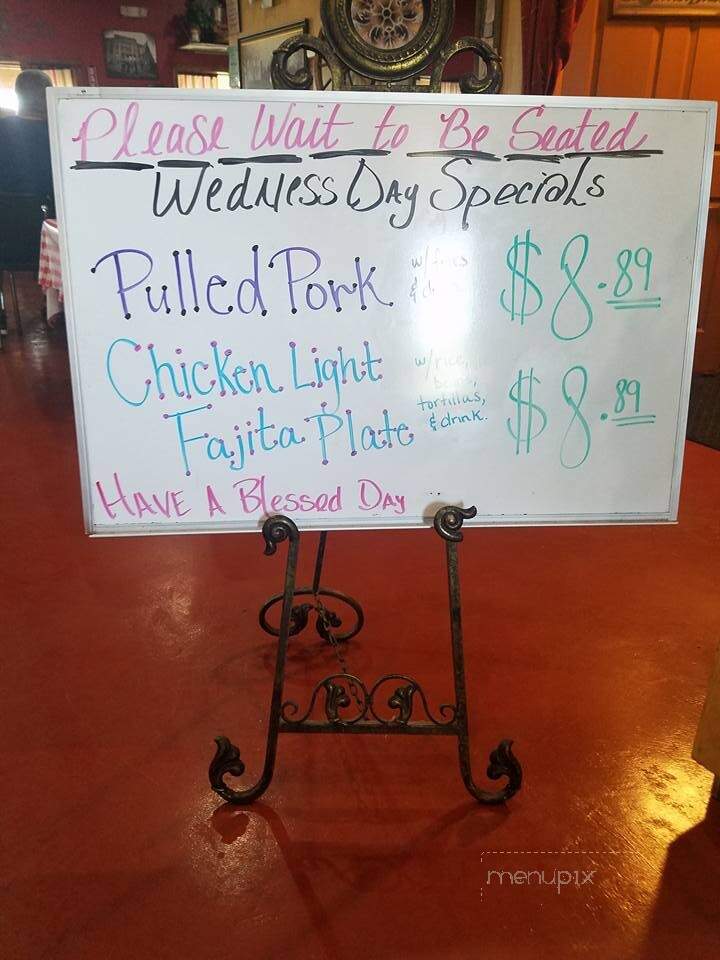 Please Wait to Be Seated
WEDNESSDAY SPECIALS
Pulled Pork w/fries $8.89
Chicken Light w/rice,
Fajita Plate tortillas, & drink. $8.89
HAVE A Blessed DAY
menupix